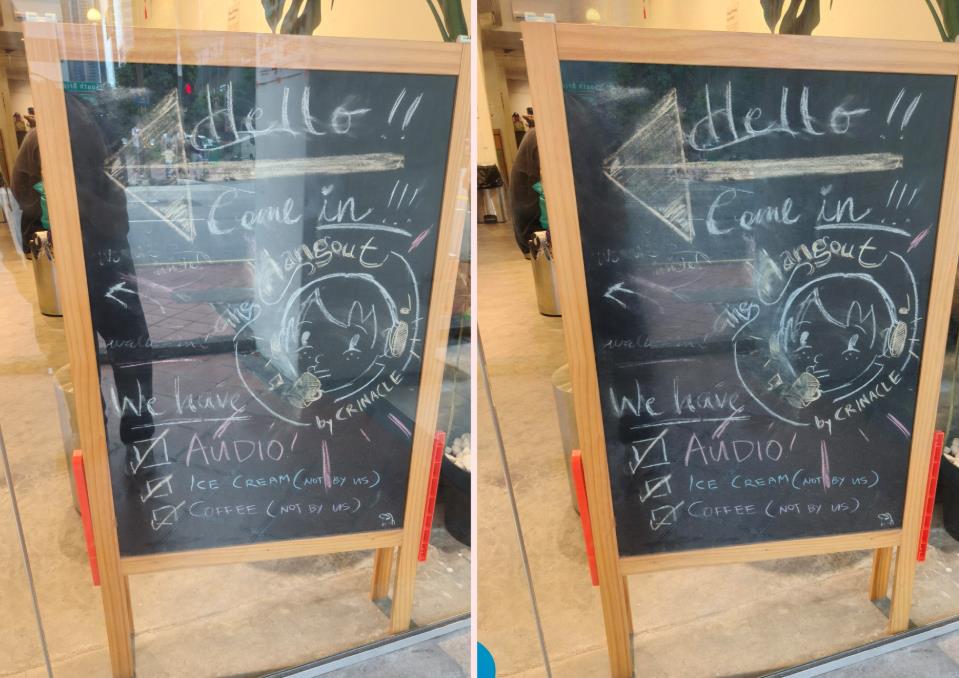 Hello!!
Come in!!!
Hangout
the
by CRINACLE
We have
AUDIO!
ICE CREAM (NOT BY US)
COFFEE (NOT BY US)
Hello!!
Come in!!!
Hangout
the
by CRINACLE
We have
AUDIO!
ICE CREAM (NOT BY US)
COFFEE (NOT BY US)